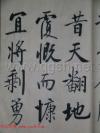 昔天翻地
覆慨而慷
宜將剩勇